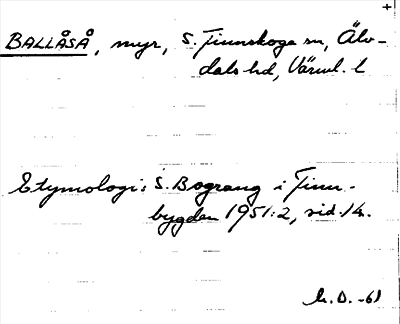 BALLÅSÅ, myr, S. Finnskoga sn, Älv-
dals hd, Värml. l
Etymologi: S. Bograng i Finn-
bygden 1951:2, sid. 14.
L. O. -61